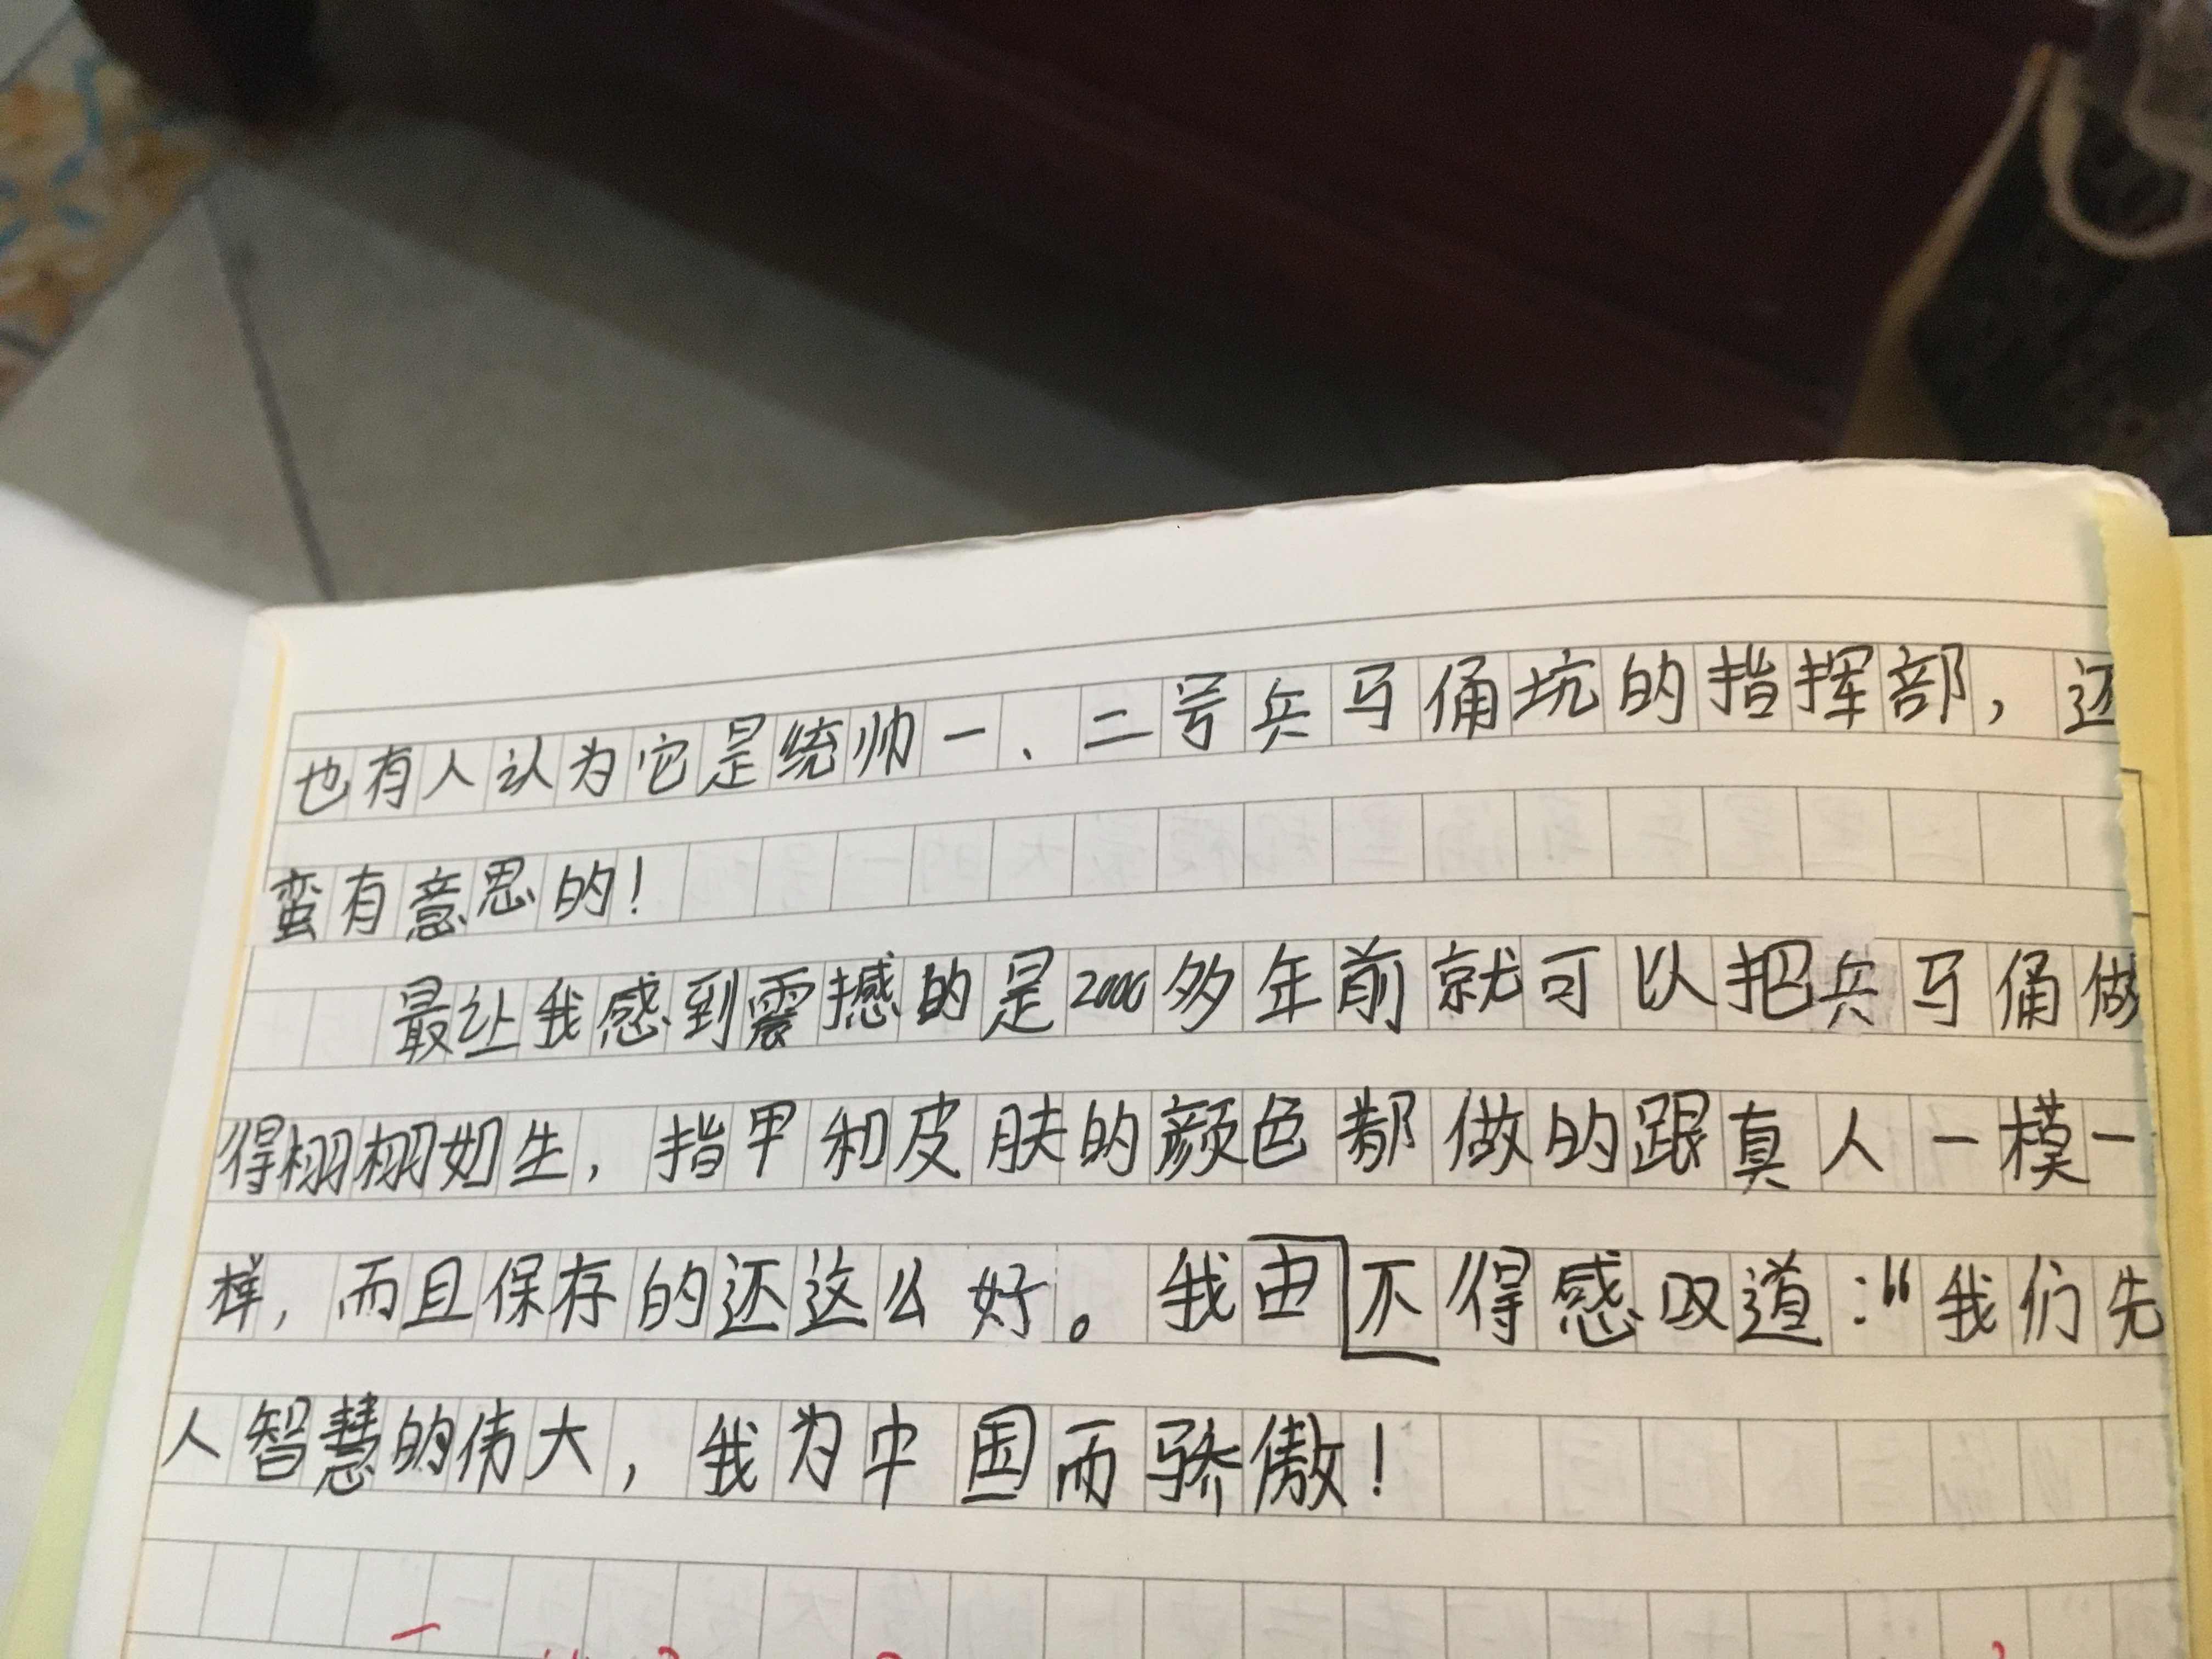 也有人认为它是统帅一、二号兵马俑坑的指挥部，还
蛮有意思的！
最让我感到震撼的是2000多年前就可以把兵马俑做
得栩栩如生，指甲和皮肤的颜色都做的跟真人一模一
样，而且保存的还这么好。我由不得感叹道：“我们先
人智慧的伟大，我为中国而骄傲！